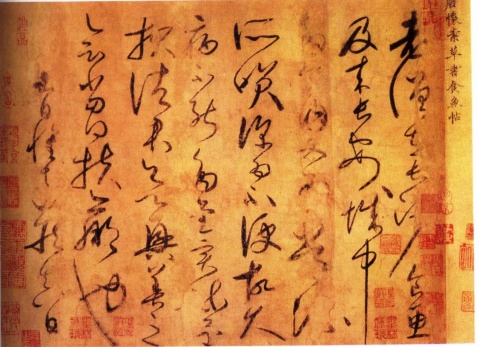 懷素草書食魚帖
老僧在長沙食魚
及來長安城中
多食肉又為常流
所笑深為不便故久
病不能多書實疏還
報諸君欲興善之
會當得扶羸也
日懷素藏真白